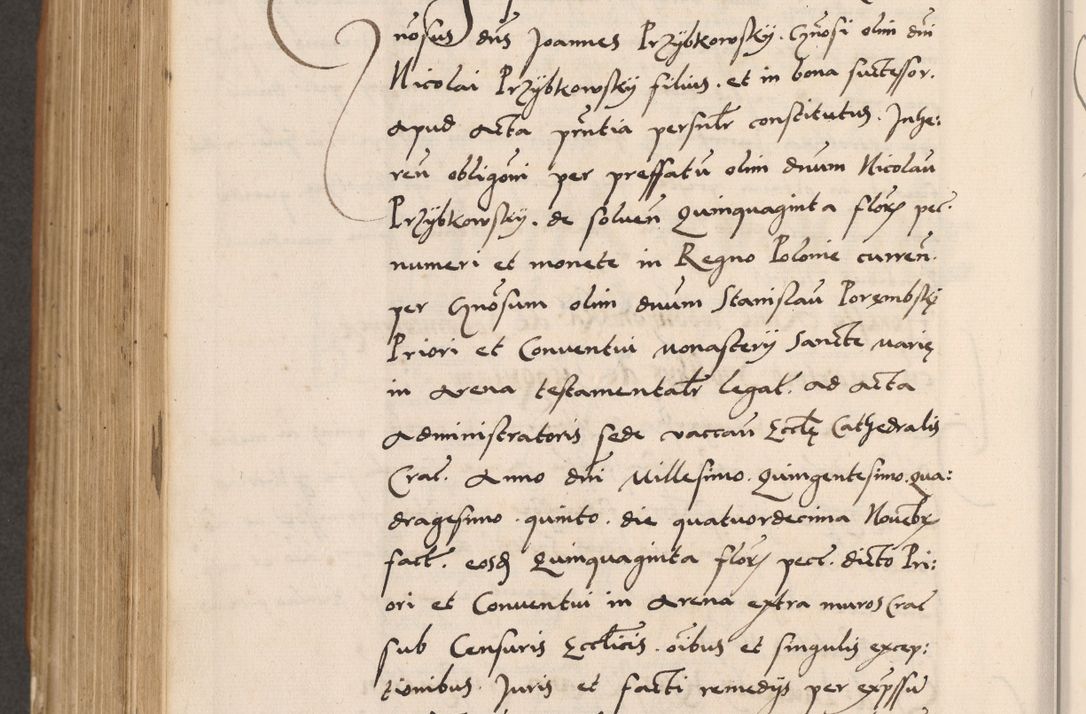 nosus dns Joannes Przybkowsky. Gnosi olim dni
Nicolai Przybkowsky filius. et in bona successor.
apud acta prntia persnlr constitutus. Inhe:
ren obligoni per preffatu olim dnum Nicolau
Przybkowsky. de solven Quinquaginta flor pec.
numeri et monete in Regno Polonie curren.
per Gnosum olim dnum Stanislau Porembsky
Priori et Conventui monasterij Sancte Marie
in Arena testamentalr legat. ad acta
Administratoris sede vaccan Eccle Cathedralis
Crac. Anno dni Millesimo. Quingentesimo. Qua:
dragesimo. quinto. die quatuordecima Novebr
fact. eosd Quinquaginta flor pecc. dicto Pri:
ori et Conventui in Arena extra muros Crac
sub Censuris Ecclicis. oibus et singulis excep:
tionibus. Juris et facti remedijs per expssu